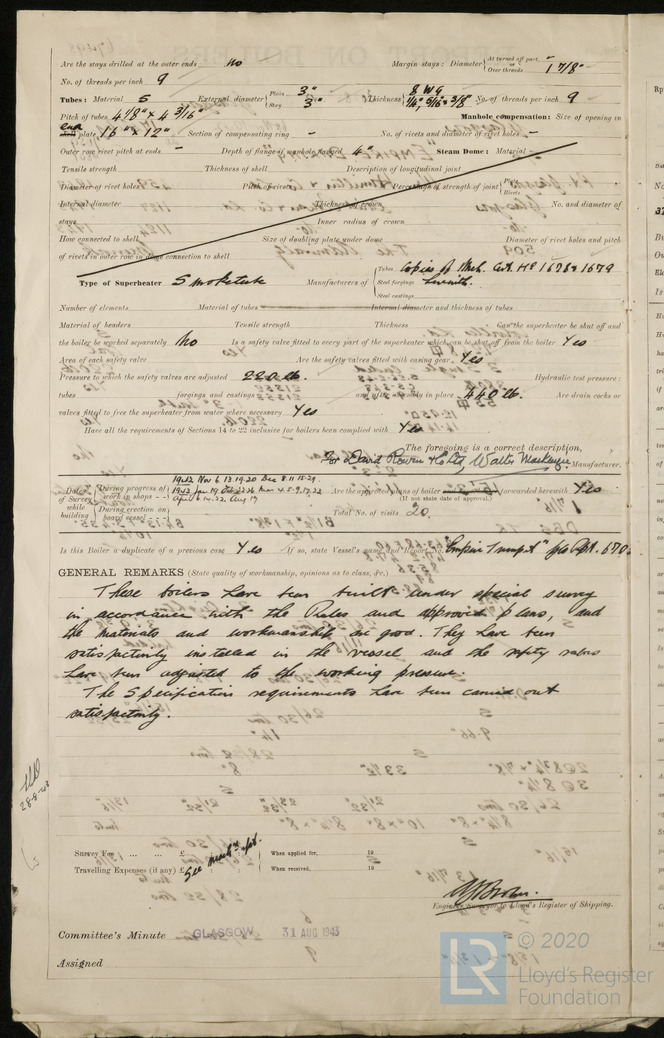 Are the stays drilled at the outer ends no Margin stays: Diameter { At turned off part, - or Over threads 1 7/8"
No. of threads per inch 9
Tubes: Material S External diameter { Plain 3" Stay 3" Thickness { 8 WG 1/4", 5/16" & 3/8" No. of threads per inch 9
Pitch of tubes 4 1/8" x 4 3/16" Manhole compensation: Size of opening in
end shell plate 16" x 12" Section of compensating ring - No. of rivets and diameter of rivet holes -
Outer row rivet pitch at ends - Depth of flange if manhole flanged 4" Steam Dome: Material -
Tensile strength Thickness of shell Description of longitudinal joint
Diameter of rivet holes Pitch of rivets Percentage of strength of joint { Plate Rivets
Internal diameter Thickness of crown No. and diameter of
stays Inner radius of crown
How connected to shell Size of doubling plate under dome Diameter of rivet holes and pitch
of rivets in outer row in dome connection to shell
Type of Superheater Smoketube Manufacturers of { Tubes Copies of Mch. Cert. Nos 1678 & 1679
Steel forgings herewith.
Steel castings
Number of elements Material of tubes Internal diameter and thickness of tubes
Material of headers Tensile strength Thickness Can the superheater be shut off and
the boiler be worked separately No Is a safety valve fitted to every part of the superheater which can be shut off from the boiler Yes
Area of each safety valve Are the safety valves fitted with easing gear Yes
Pressure to which the safety valves are adjusted 220 lb. Hydraulic test pressure:
tubes forgings and castings and after assembly in place 440 lb. Are drain cocks or
valves fitted to free the superheater from water where necessary Yes
Have all the requirements of Sections 14 to 22 inclusive for boilers been complied with Yes
The foregoing is a correct description,
For David Rowan & Co Ltd Walter Mackenzie Manufacturer.
Dates of Survey while building { During progress of work in shops - - 1942 Nov 6. 13. 19. 20 Dec 8. 11. 15. 29.
1943 Jan 19
April 6. 14. 22. Aug 19
During erection on board vessel - - -
Are the approved plans of boiler forwarded herewith Yes
(If not state date of approval.)
Total No. of visits 20.
Is this Boiler a duplicate of a previous case Yes If so, state Vessel's name and Report No. "Empire Trumpet" Gls Rpt. 670
GENERAL REMARKS (State quality of workmanship, opinions as to class, &c.)
These boilers have been built under special survey
in accordance with the Rules and approved plans, and
the materials and workmanship are good. They have been
satisfactorily installed in the vessel and the safety valves
have been adjusted to the working pressure.
The Specification requirements have been carried out
satisfactorily.
28-8-43
Survey Fee ... ... £ See Mach'y rpt. { When applied for, 19
Travelling Expenses (if any) £ { When received, 19
Engineer Surveyor to Lloyd's Register of Shipping.
Committee's Minute GLASGOW 31 AUG 1943
Assigned
LR © 2020
Lloyd's Register
Foundation